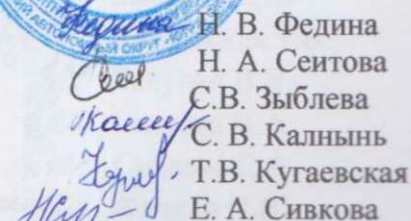 Н. В. Федина
Н. А. Сеитова
С.В. Зыблева
С. В. Калнынь
Т.В. Кугаевская
Е. А. Сивкова